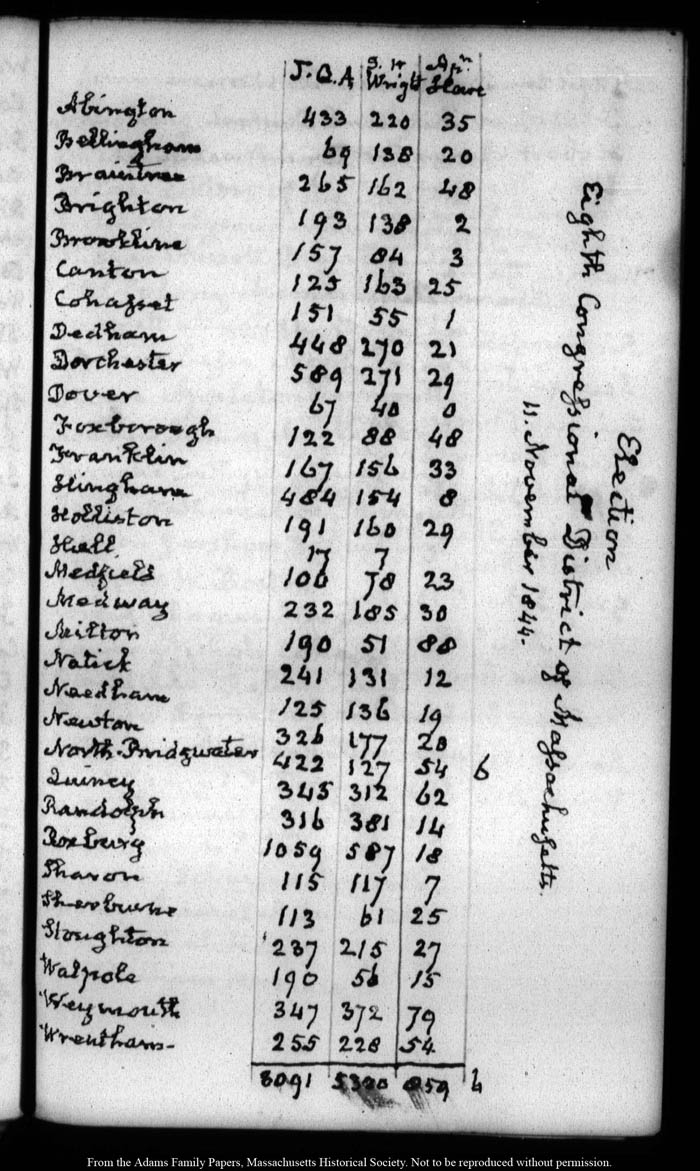 J.Q.A S. H Wright Apn Slave
Abington 433 220 35
Bellingham 69 138 20
Braintree 265 162 48
Brighton 193 138 2
Brookline 157 84 3
Canton 125 163 25
Cohasset 151 55 1
Dedham 448 270 21
Dorchester 589 271 29
Dover 67 40 0
Foxborough 122 88 48
Franklin 167 156 33
Hingham 484 154 8
Holliston 191 160 29
Hull 17 7
Medfield 100 78 23
Medway 232 185 30
Milton 190 51 88
Natick 241 131 12
Needham 125 136 19
Newton 326 177 20
North-Bridgwater 422 127 54 6
Quincy 345 312 62
Randolph 316 381 14
Roxbury 1059 587 18
Sharon 115 117 7
Sherburne 113 61 25
Stoughton 237 215 27
Walpole 190 56 15
Weymouth 347 372 79
Wrentham- 255 228 54
8091 5320 859 6
Election
Eighth Congressional District of Massachusetts.
11. November 1844.
From the Adams Family Papers, Massachusetts Historical Society. Not to be reproduced without permission.